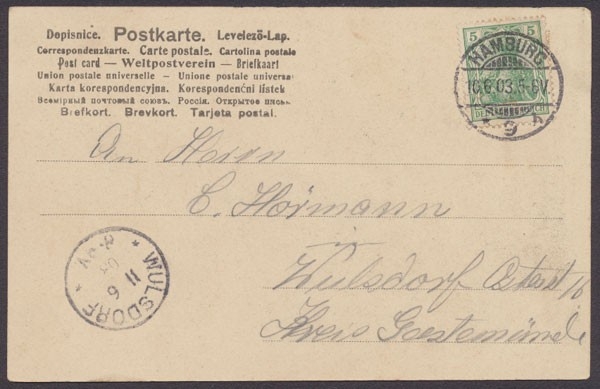 Dopisnice. Postkarte. Levelező-Lap.
Correspondenzkarte. Carte postale. Cartolina postale
Post card — Weltpostverein — Briefkaart
Union postale universelle — Unione postale universa
Karta korespondencyjna. Korespondenční listek
Всемірный почтовый союзъ. Россія. Открытое письм
Brefkort. Brevkort. Tarjeta postal.
5 5
HAMBURG
5-6V.
9
An Herrn
C. Hörmann
in
Wulsdorf
Kreis Geestemünde
WULSDORF
11 6